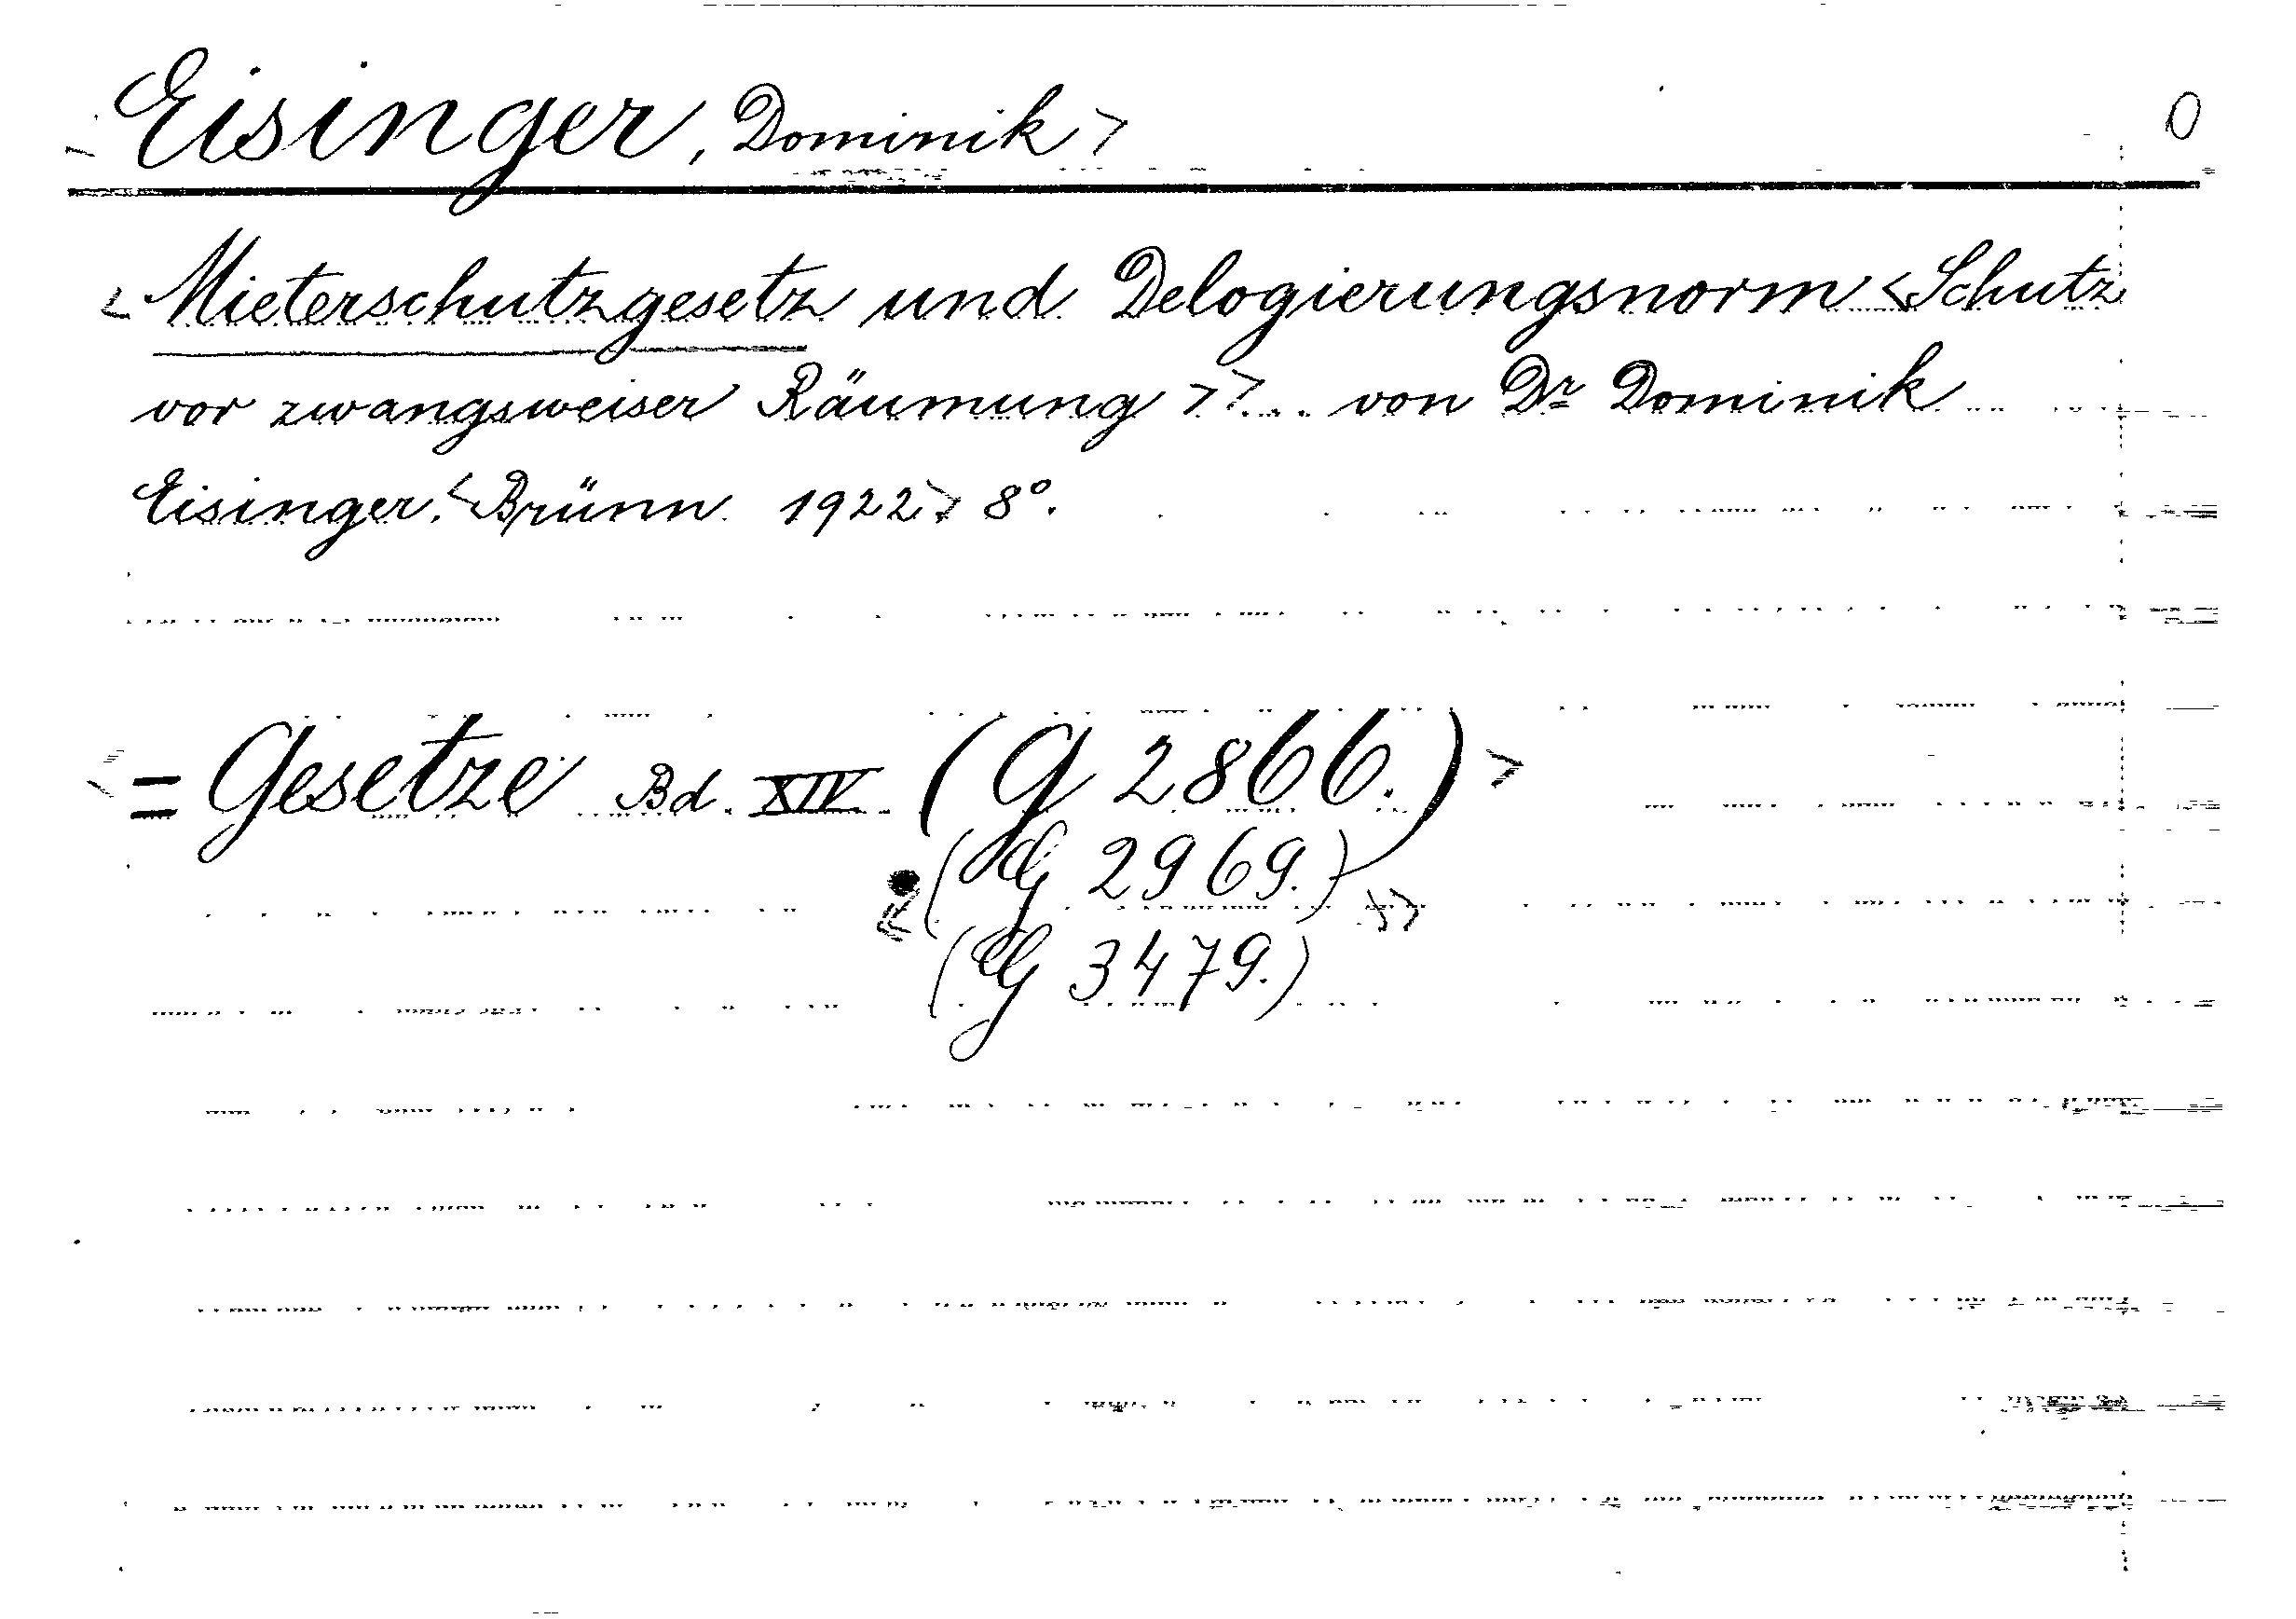 < Eisinger, Dominik > 0
< Mieterschutzgesetz und Delogierungsnorm < Schutz
vor zwangsweiser Räumung >> ... von Dr Dominik
Eisinger. < Brünn 1922 > 8°.
< = Gesetze Bd. XIV (G 2866.) >
« (G 2969.) »
(G 3479.)